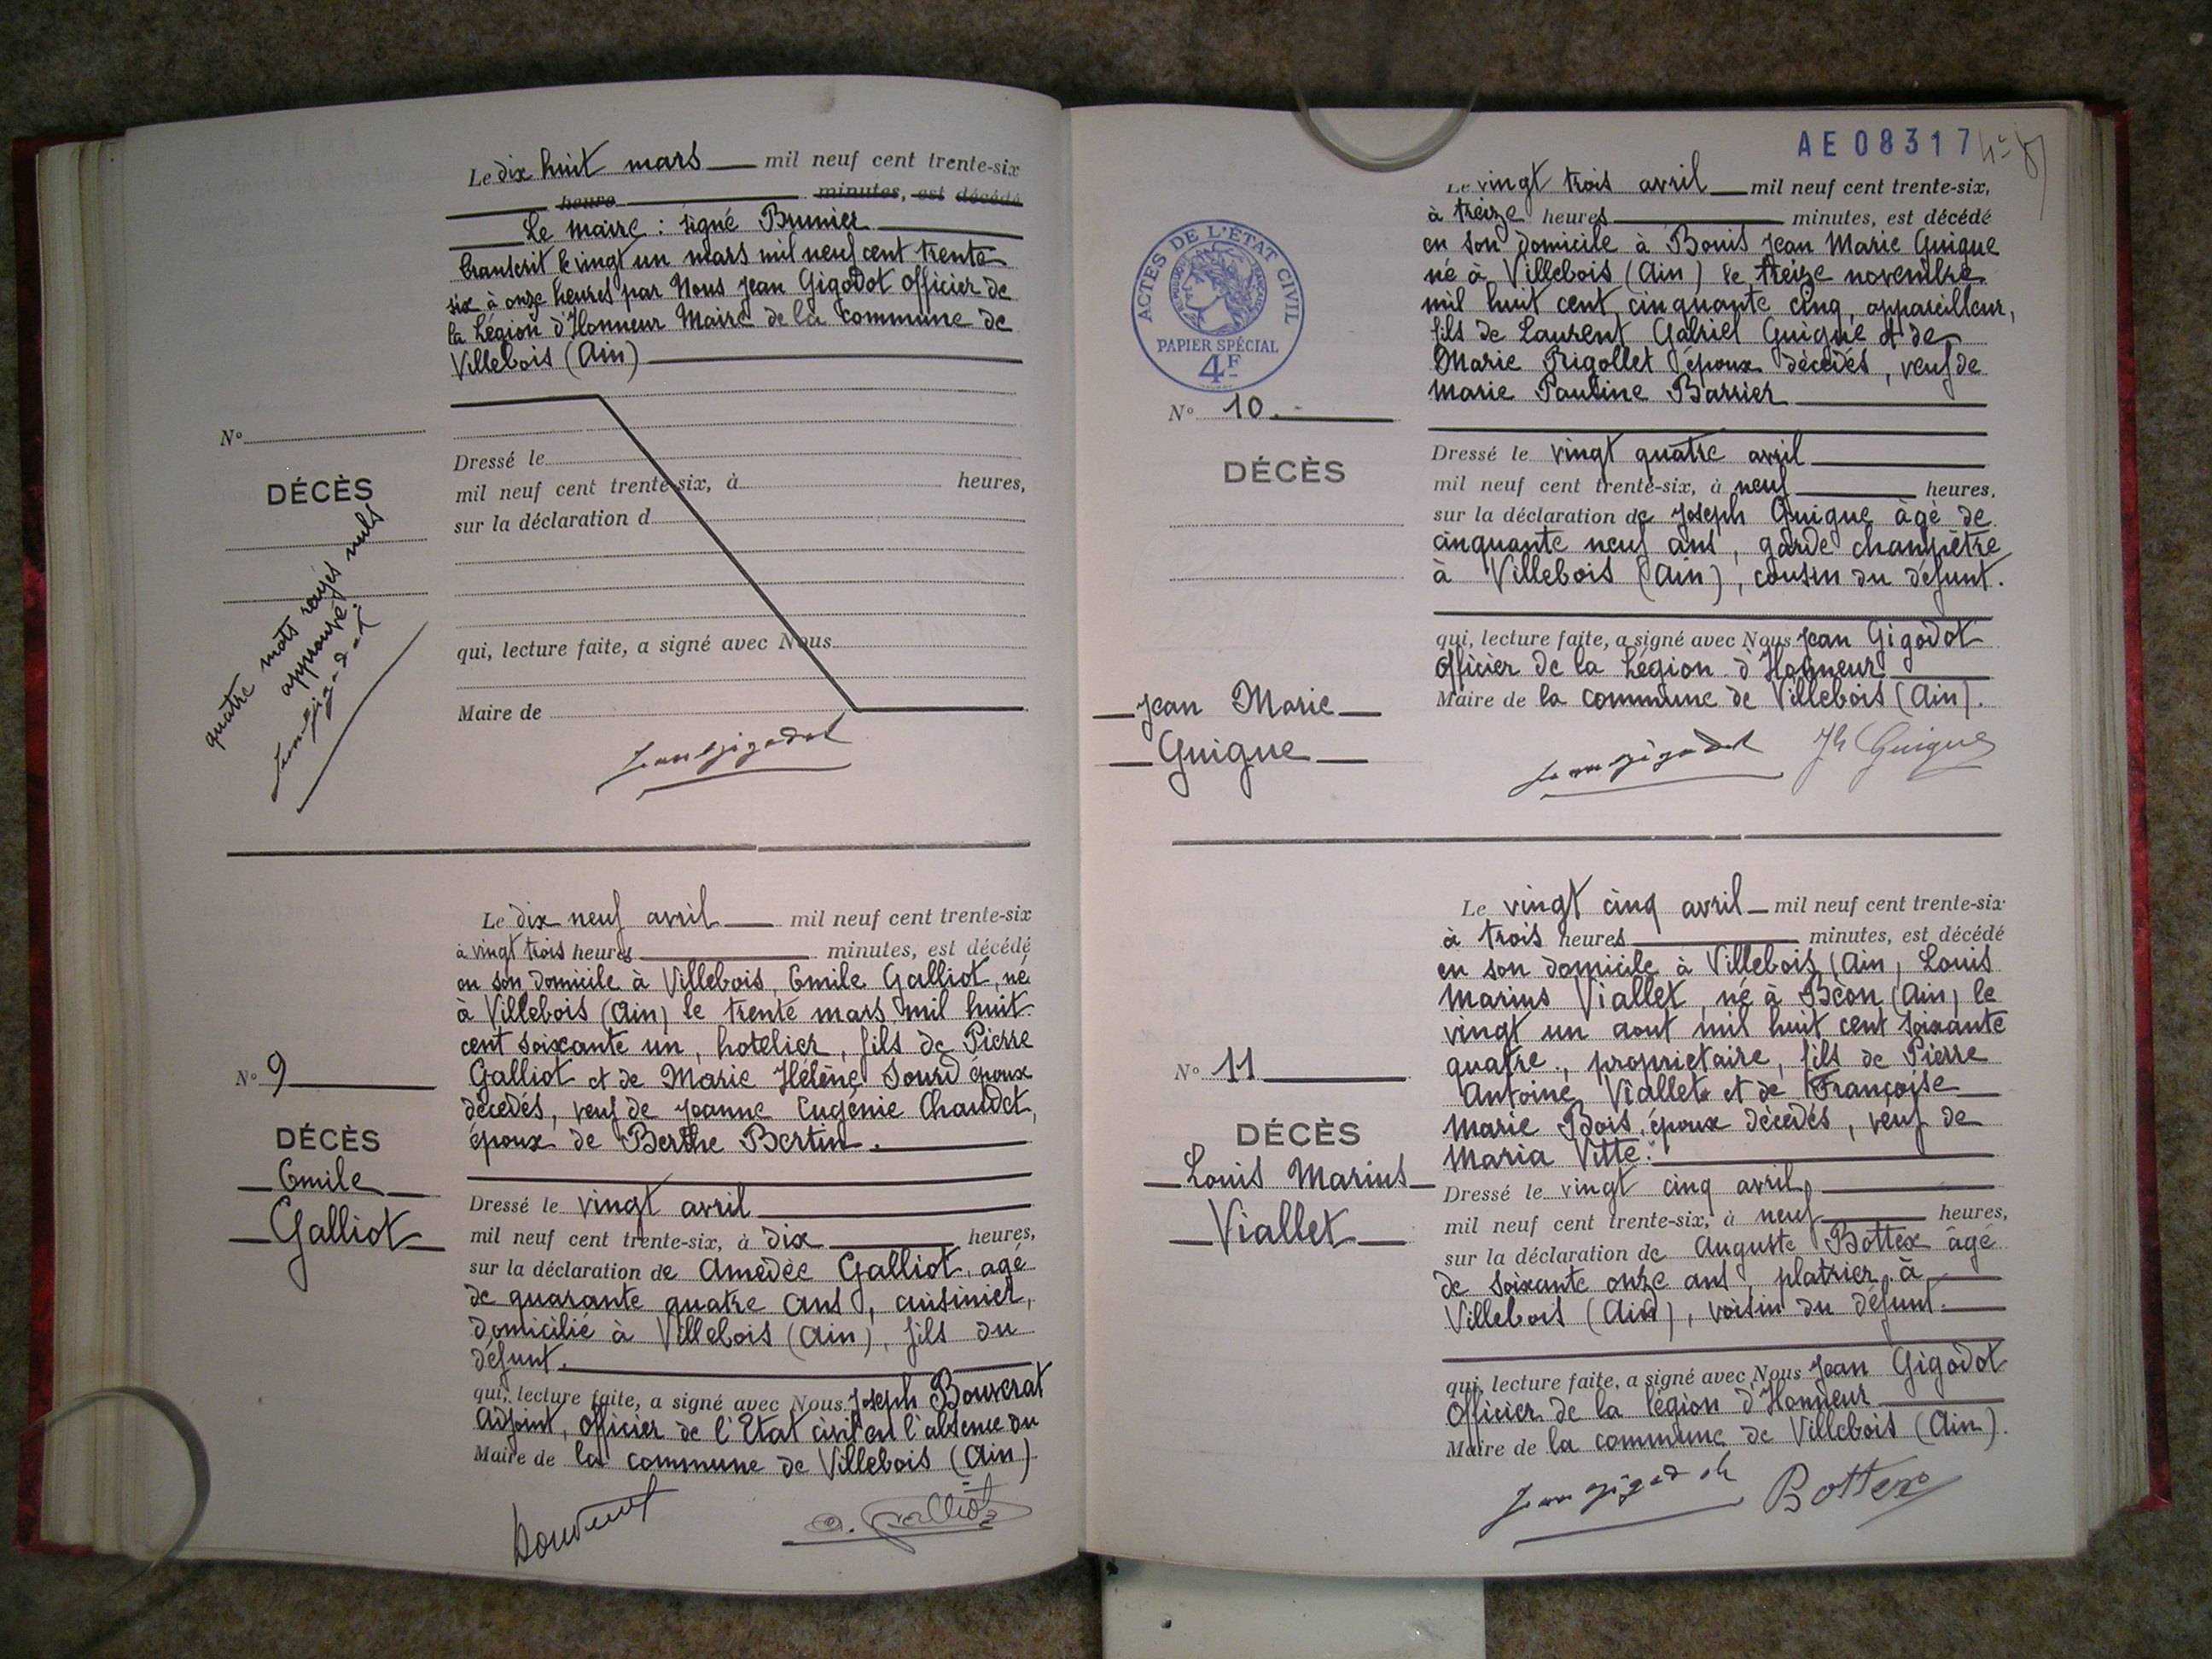 Le dix huit mars mil neuf cent trente-six
heure minutes, est décédé
Le maire : signé Brunier
transcrit le vingt un mars mil neuf cent trente
six à onze heures par Nous Jean Gigodot officier de
la Légion d'Honneur Maire de la commune de
Villebois (Ain)
N°
DÉCÈS
quatre mots rayés nuls
approuvé.
Jean Gigodot
Dressé le
mil neuf cent trente-six, à heures,
sur la déclaration d
qui, lecture faite, a signé avec Nous
Maire de
Jean Gigodot
Le dix neuf avril mil neuf cent trente-six
à vingt trois heures minutes, est décédé
en son domicile à Villebois, Emile Galliot, né
à Villebois (Ain) le trente mars mil huit
cent soixante un, hotelier, fils de Pierre
Galliot et de Marie Hélène Sourd époux
décedés, veuf de Jeanne Eugénie Chaudet,
époux de Berthe Bertin.
N° 9
DÉCÈS
Emile
Galliot
Dressé le vingt avril
mil neuf cent trente-six, à dix heures,
sur la déclaration de Amédée Galliot, agé
de quarante quatre ans, cuisinier,
domicilié à Villebois (Ain), fils du
défunt.
qui, lecture faite, a signé avec Nous Joseph Bouvrat
Adjoint, officier de l'Etat civil en l'absence du
Maire de la commune de Villebois (Ain).
a. Galliot
AE08317
Le vingt trois avril mil neuf cent trente-six,
à treize heures minutes, est décédé
en son domicile à Bouis Jean Marie Guigue
né à Villebois (Ain) le treize novembre
mil huit cent cinquante cinq, appareilleur,
fils de Laurent Gabriel Guigue et de
Marie Rigollet époux décédés, veuf de
Marie Pauline Barrier
ACTES DE L'ÉTAT CIVIL
RÉPUBLIQUE FRANÇAISE
PAPIER SPÉCIAL
4F
N° 10.
DÉCÈS
Jean Marie
Guigue
Dressé le vingt quatre avril
mil neuf cent trente-six, à neuf heures,
sur la déclaration de Joseph Guigue âgé de
cinquante neuf ans, garde champêtre
à Villebois (Ain), cousin du défunt.
qui, lecture faite, a signé avec Nous Jean Gigodot
Officier de la Légion d'Honneur
Maire de la commune de Villebois (Ain).
Jean Gigodot Jh Guigue
Le vingt cinq avril mil neuf cent trente-six
à trois heures minutes, est décédé
en son domicile à Villebois (Ain, Louis
Marius Viallet, né à Béon (Ain) le
vingt un aout mil huit cent soixante
quatre, proprietaire, fils de Pierre
Antoine Viallet et de Françoise
Marie Bois, époux décédés, veuf de
Maria Vitte.
N° 11
DÉCÈS
Louis Marius
Viallet
Dressé le vingt cinq avril
mil neuf cent trente-six, à neuf heures,
sur la déclaration de Auguste Bottex âgé
de soixante onze ans, platrier, à
Villebois (Ain), voisin du défunt.
qui, lecture faite, a signé avec Nous Jean Gigodot
Officier de la légion d'Honneur
Maire de la commune de Villebois (Ain).
Jean Gigodot Bottex